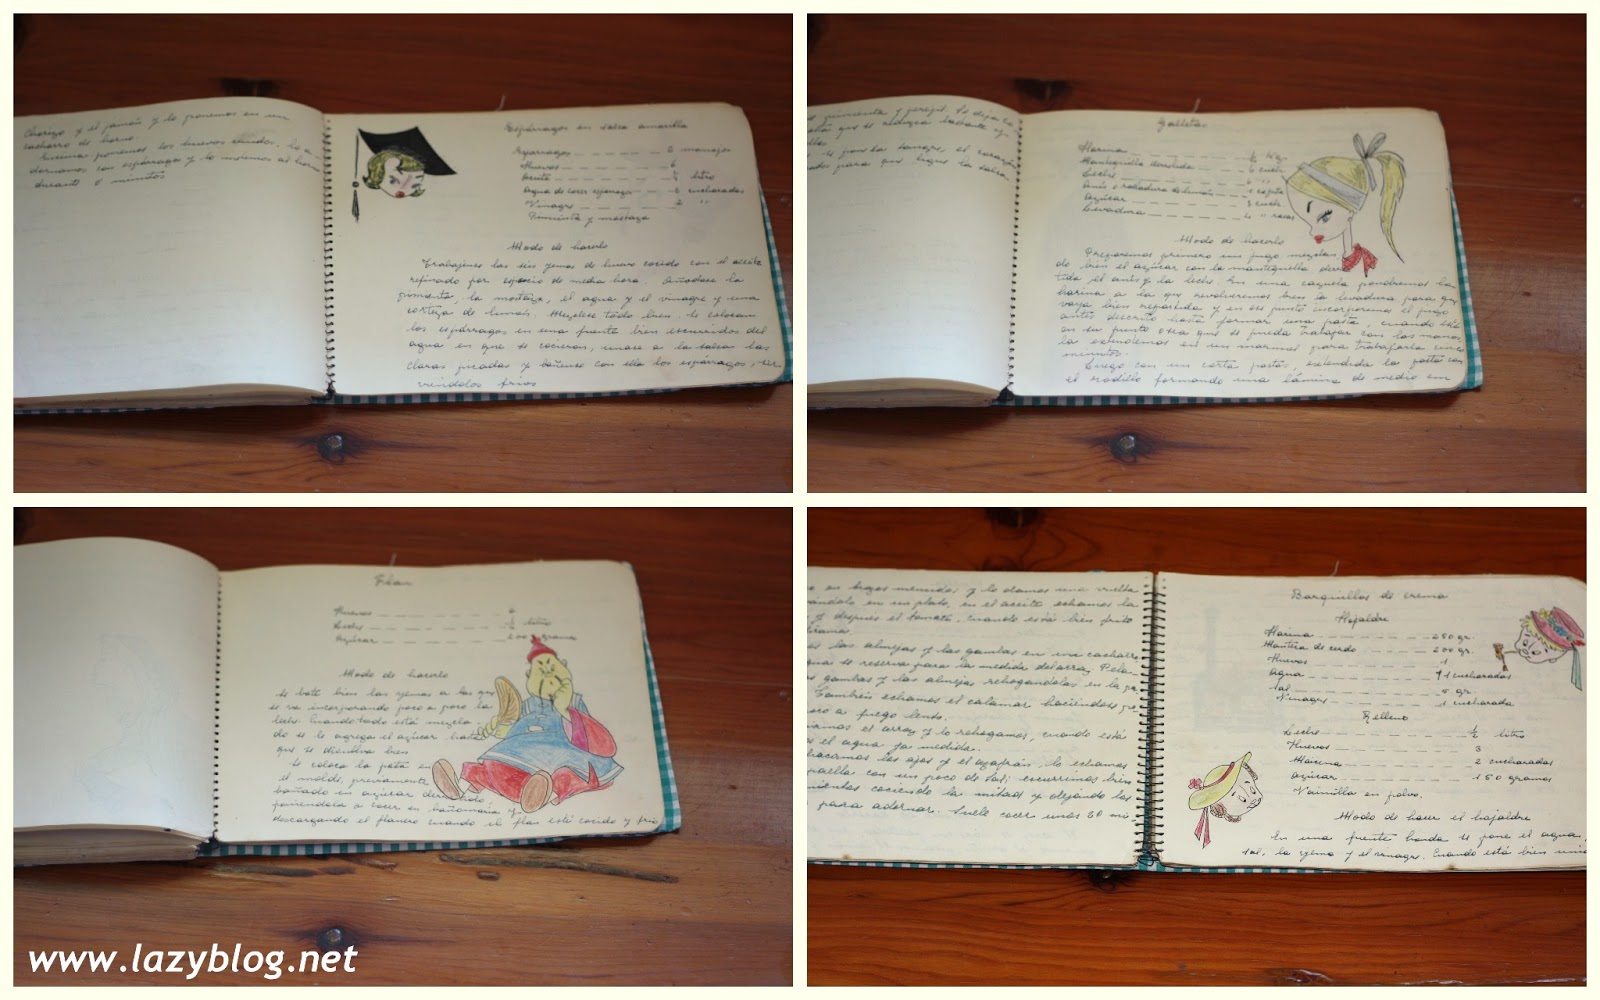 chorizo y el jamón y lo ponemos en un
cacharro de horno.
Encima ponemos los huevos batidos, lo a-
dornamos con espárragos y lo metemos al horno
durante 5 minutos
Espárragos en salsa amarilla
Espárragos 2 manojos
Huevos 6
Aceite ½ litro
Agua de cocer 2 cucharadas
Vinagre 2 "
Pimienta y mostaza
Modo de hacerlo
Trabájense las seis yemas de huevo cocido con el aceite
refinado por espacio de media hora. Añádase la
pimienta, la mostaza, el agua y el vinagre y una
corteza de limón. Mézclese todo bien. Se colocan
los espárragos en una fuente bien escurridos del
agua en que se cocieron, únase a la salsa las
claras picadas y báñense con ella los espárragos, sir-
viéndolos fríos
pimienta y perejil. Se deja
que se reduzca bastante y
se pone la sangre, el corazón
para que ligue la salsa
Galletas
Harina ½ kg.
Mantequilla derretida 6 cuch.
Leche 6 "
Anís o ralladura de limón 1 copita
Azúcar cuch.
Levadura 4 "
Modo de hacerlo
Preparamos primero un jugo mezclan
do bien el azúcar con la mantequilla derre
tida el anís y la leche. En una cazuela pondremos la
harina a la que revolveremos bien la levadura para que
vaya bien repartida y en ese punto incorporemos el jugo
antes descrito hasta formar una pasta, cuando esté
en su punto o sea que se pueda trabajar con las manos,
la extendemos en un mármol para trabajarla unos
minutos.
Luego con un corta pastas, extendida la pasta con
el rodillo formando una lámina de medio cm
Flan
Huevos 6
Leche ½ litro
Azúcar 200 gramos
Modo de hacerlo
Se bate bien las yemas a las que
se va incorporando poco a poco la
leche. Cuando todo está mezcla-
do se le agrega el azúcar hasta
que se disuelva bien
Se coloca la pasta en
el molde, previamente
bañado en azúcar derretido
poniéndola a cocer en bañomaría y
descargando el flanero cuando el flan esté cocido y frío
en trozos menudos y lo damos una vuelta
en un plato, en el aceite echamos la
y después el tomate, cuando está bien frito
las almejas y las gambas en una cacharro,
agua se reserva para la medida del arroz. Pela-
gambas y las almejas rehogándolas en la
También echamos el calamar haciéndose
a fuego lento.
el arroz y lo rehogamos, cuando está
el agua ya medida.
los ajos y el azafrán, lo echamos
paella con un poco de sal; escurrimos bien
cociendo la mitad y dejando las
para adornar. Suele cocer unos 20 mi.
Barquillos de crema
Hojaldre
Harina 250 gr.
Manteca de cerdo 200 gr.
Huevos 1
Agua 11 cucharadas
Sal 5 gr.
Vinagre 1 cucharada
Relleno
Leche ½ litro
Huevos 3
Harina 2 cucharadas
Azúcar 150 gramos
Vainilla en polvo.
Modo de hacer el hojaldre
En una fuente honda se pone el agua,
sal, la yema y el vinagre. Cuando está bien unido
www.lazyblog.net